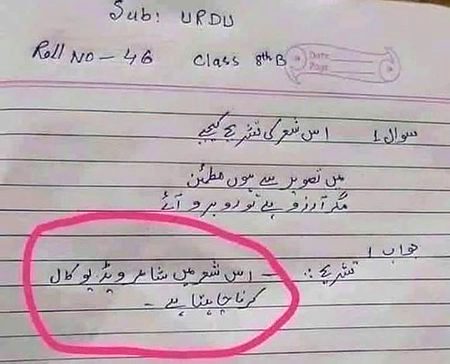 Sub: URDU
Roll No - 46 Class 8th B Date
Page
سوال 1 اس شعر کی تشریح کیجیے
میں تصویر سے ہوں مطمئن
مگر آرزو ہے تو روبرو آئے
جواب 1
تشریح :. - اس شعر میں شاعر ویڈیو کال
کرنا چاہتا ہے -